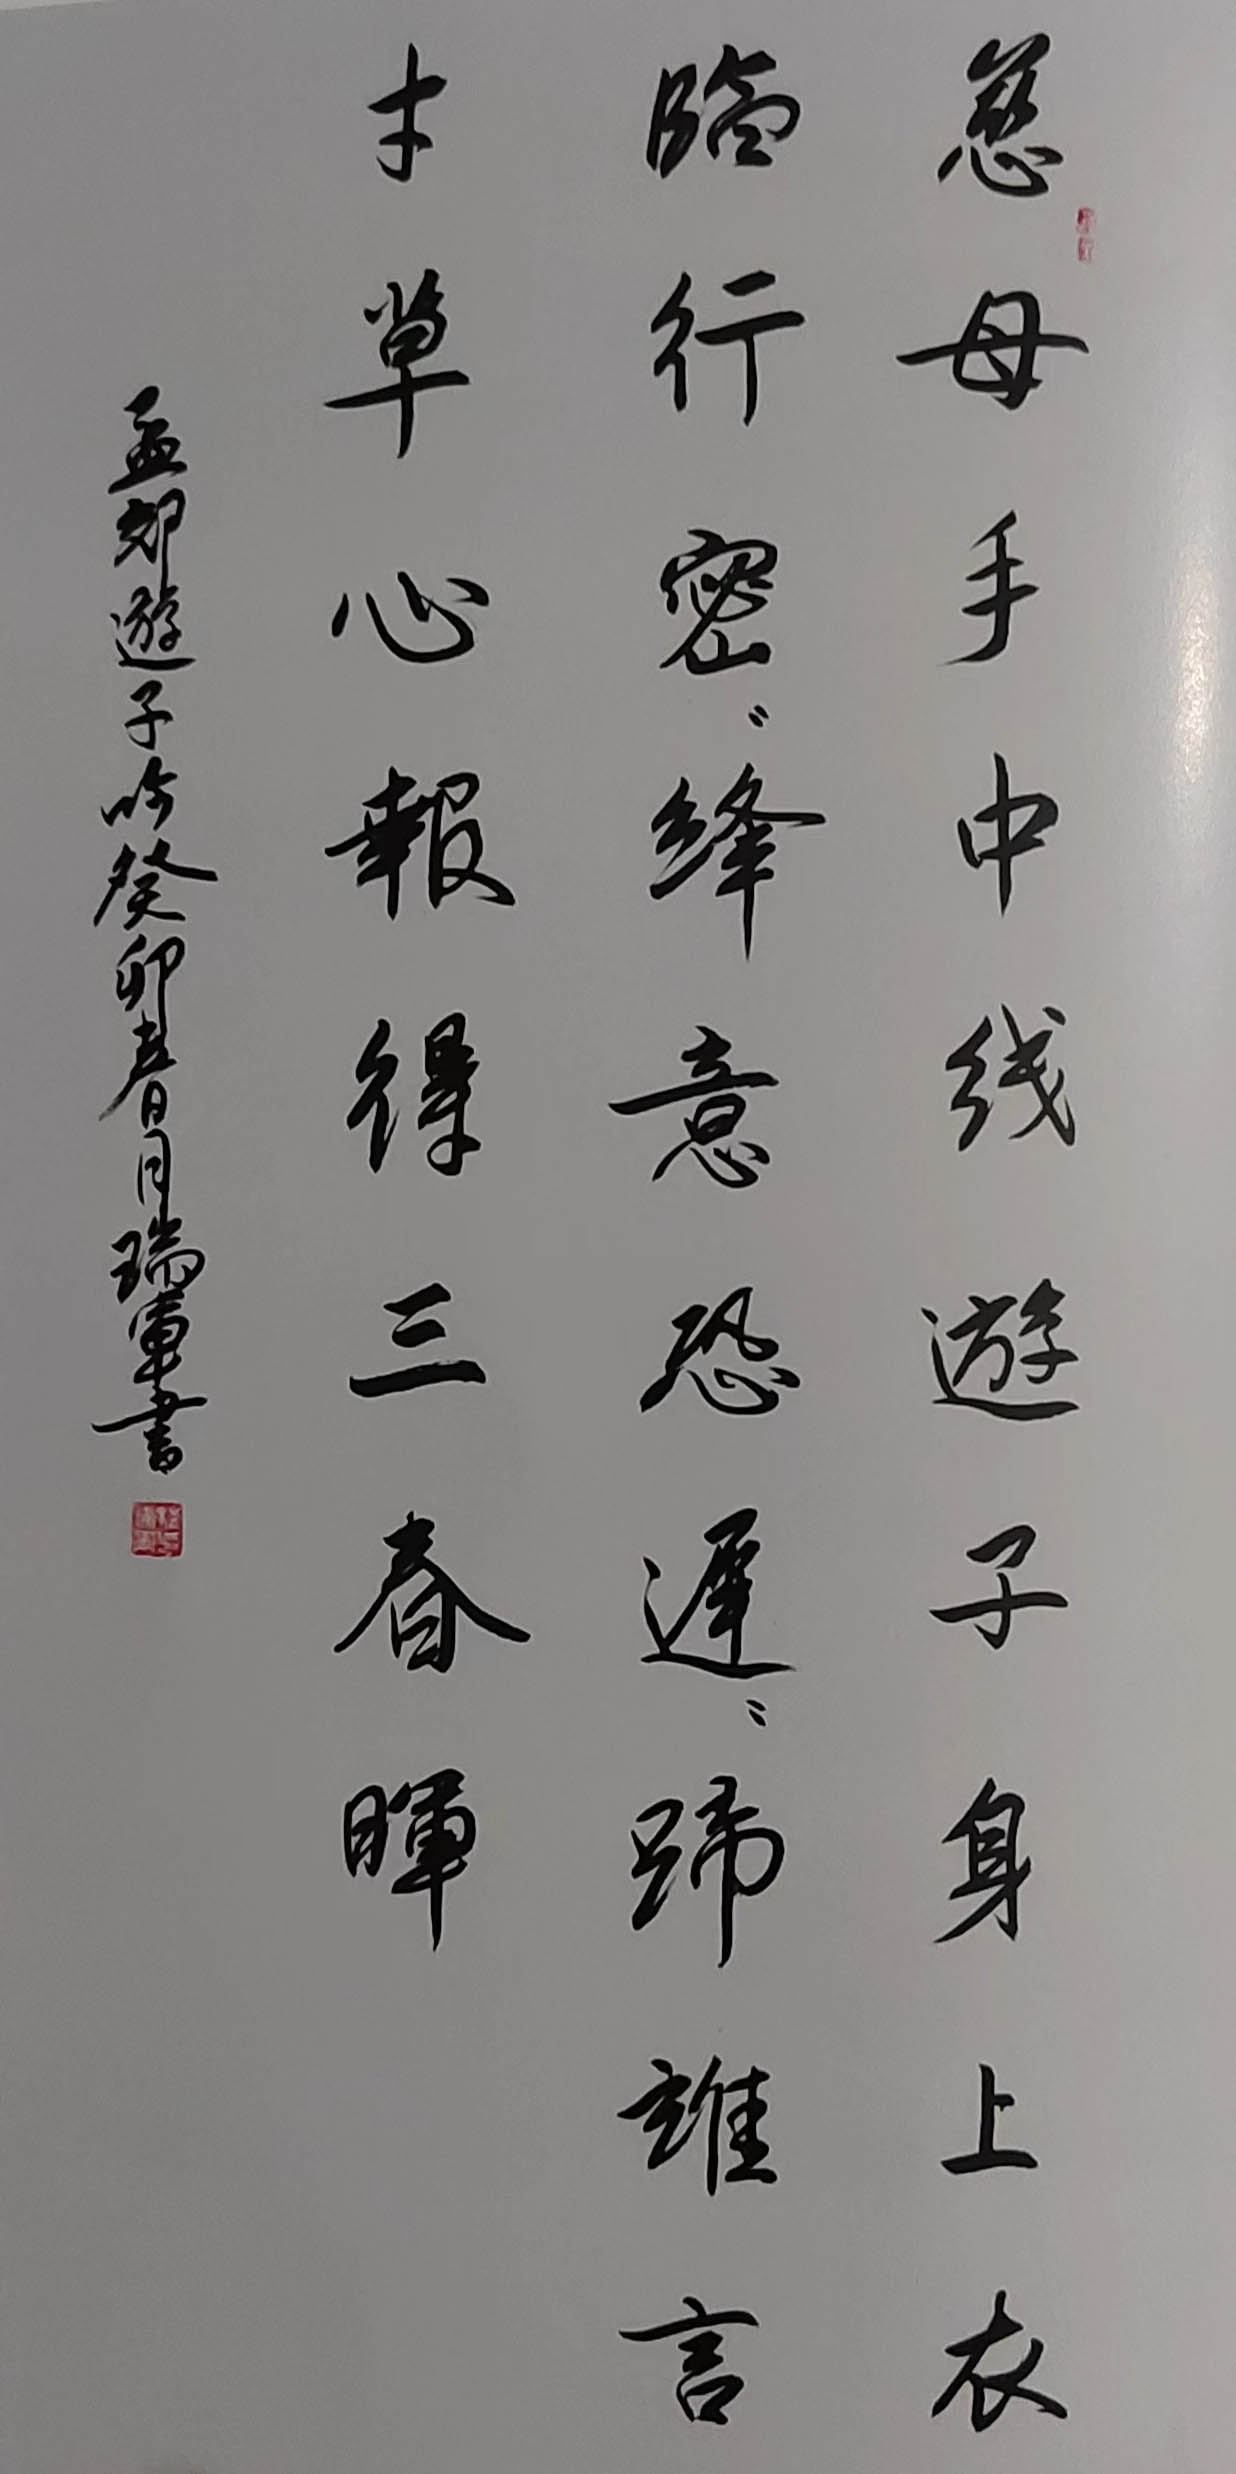 慈母手中线遊子身上衣
臨行密〻絳意恐遲〻蹄誰言
寸草心報得三春暉
孟郊遊子吟癸卯春月瑞軍書